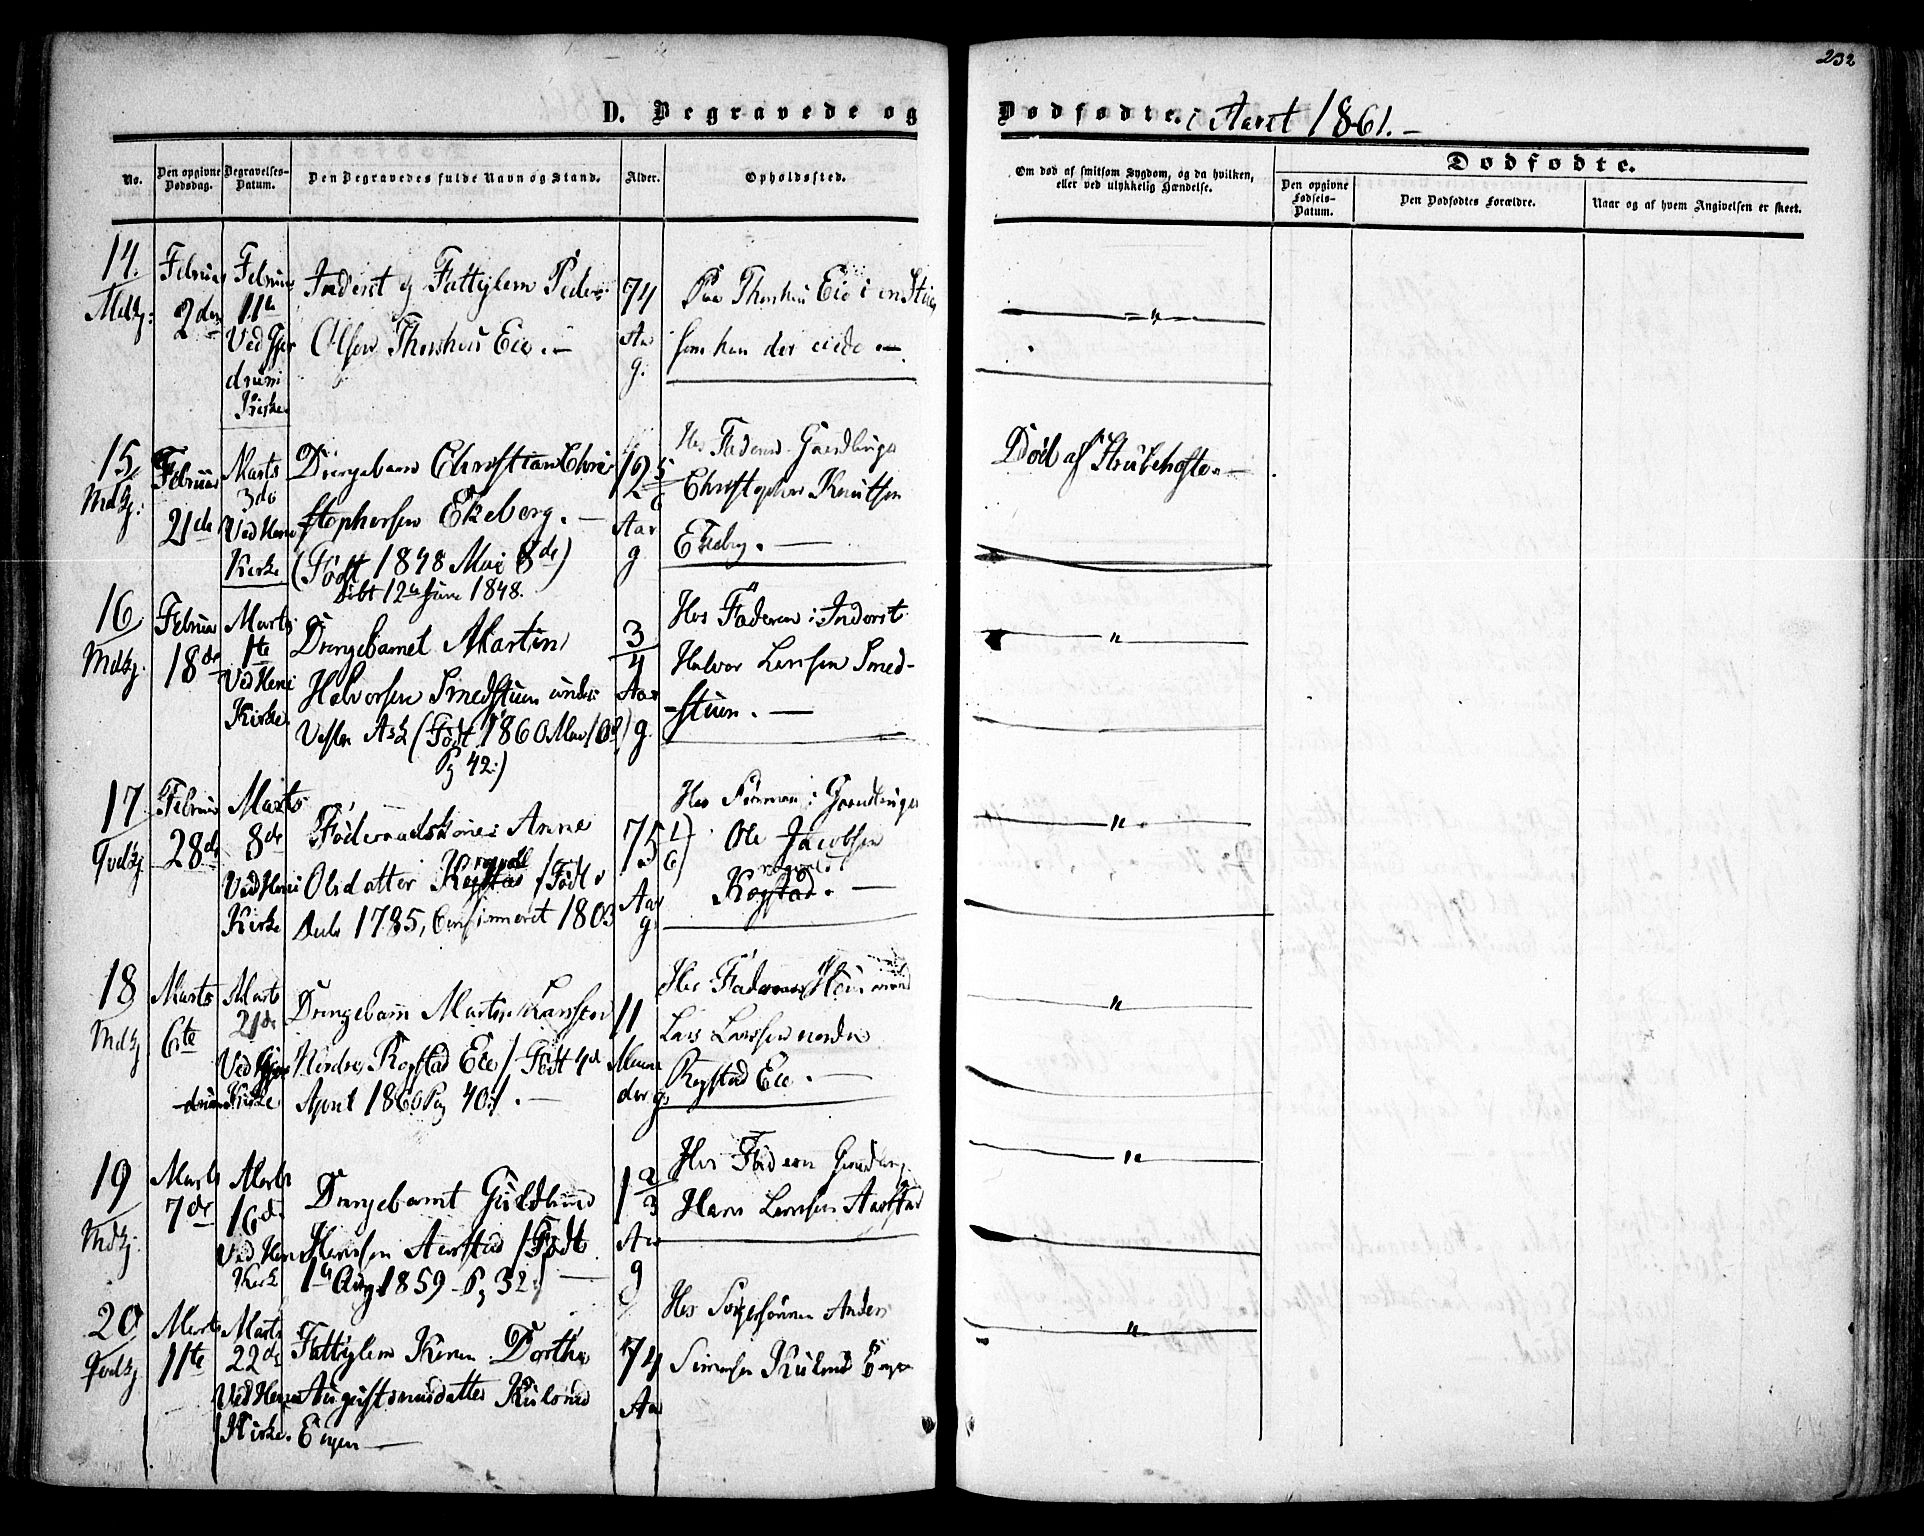 232
D. Begravede og Dødfødte. i Aaret 1861.-
No.
Den opgivne Dødsdag.
Begravelses-Datum.
Den Begravedes fulde Navn og Stand.
Alder.
Opholdssted.
Om død af smitsom Sygdom, og da hvilken, eller ved ulykkelig Hændelse.
Dødfødte.
Den opgivne Fødsels-Datum.
Den Dødfødtes Forældre.
Naar og af hvem Angivelsen er skeet.
14.
Mdkj:
Februar
2den
Februar
11te
Ved Gjer
drum
Kirke
Inderst og Fattiglem Peder
Olsen Eie.-
74
Aar
g.
Paa Eie i en Stue
som han der eiede.-
"
15
Mdkj:
Februar
21de
Marts
3die
Ved Heni
Kirke
Drengebarn Christian Chri-
stophersen Ekeberg.-
(Født 1848 Mai 8de)
Døbt 12te Juni 1848.
12 5/6
Aar
g
Hos Faderen Gaardbruger
Christopher Knutsen
Ekeberg.-
Død af Strubehoste.-
16
Mdkj.
Februar
18de
Marts
1te
Ved Heni
Kirke
Drengebarnet Martin
Halvorsen Smedstuen under
Vestre Ask (Født 1860 Mai
Pg 42:)
3/4
Aar
g.
Hos Faderen : Inderst
Halvor Larsen Smed-
-stuen.-
"
17
Qvdkj
Februar
28de
Marts
8de
Ved Heni
Kirke
Føderaadskone: Anne
Olsdatter Kogstad /Født
Dec 1785, Confirmeret 1803
75 1/6
Aar
g.
Hos Sønnen : Gaardbruger
Ole Jacobsen
Kogstad.-
"
18
Mdkj
Marts
6te
Marts
21de
Ved Gjer
drum Kirke
Drengebarn Martin Larsen
Nordre Rogstad Eie /: Født 4de
April 1860 Pag 40:/.-
11
Maane
der g.
Hos Faderen Huusmand
Lars Larsen nordre
Rogstad Eie.-
"
19
Mdkj.
Marts
7de
Marts
16de
Ved Heni
Kirke
Drengebarnet Guldbrand
Hansen Aarstad /:Født
1te Aug 1859 - Pg 32:/ -
1 2/3
Aar
g
Hos Faderen Gaardbruger
Hans Larsen Aarstad
"
20
Qvdkj
Marts
11te
Marts
22de
Ved Heni
Kirke.
Fattiglem Karen Dorthe
Augustinusdatter Kulsrud
Engen -
74
Aar
Hos Anders
Simensen Kulsrud Engen
"